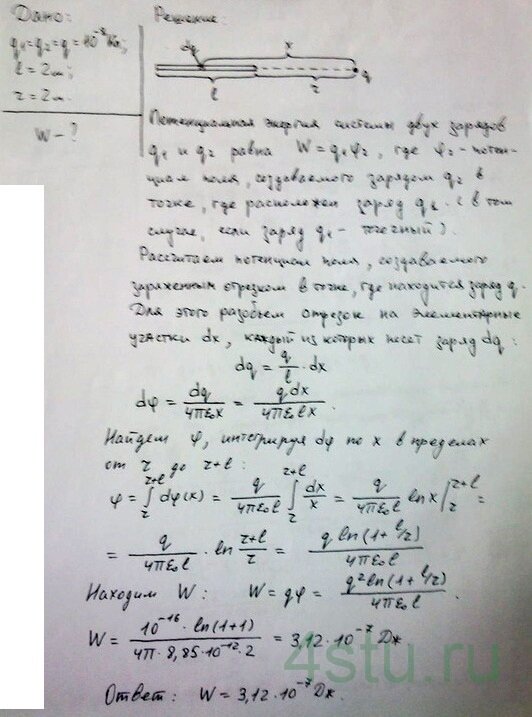 Дано:
q₁=q₂=q=10⁻⁸Кл;
l = 2м;
r = 2м.
W - ?
Решение:
dq
x
q
l
r
Потенциальная энергия системы двух зарядов
q₁ и q₂ равна W = q₁φ₂, где φ₂ - потен-
циал поля, создаваемого зарядом q₂ в
точке, где расположен заряд q₁. (в том
случае, если заряд q₁ - точечный).
Рассчитаем потенциал поля, создаваемого
заряженным отрезком в точке, где находится заряд q.
Для этого разобьем отрезок на элементарные
участки dx, каждый из которых несет заряд dq:
dq = q/l · dx
dφ = dq/4πε₀x = qdx/4πε₀lx.
Найдем φ, интегрируя dφ по x в пределах
от r до r+l:
φ = ∫_r^{r+l} dφ(x) = q/4πε₀l ∫_r^{r+l} dx/x = q/4πε₀l ln x |_r^{r+l} =
= q/4πε₀l · ln (r+l)/r = q ln(1+l/r)/4πε₀l
Находим W: W = qφ = q² ln(1+l/r)/4πε₀l.
W = 10⁻¹⁶ · ln(1+1)/4π · 8,85·10⁻¹² · 2 = 3,12·10⁻⁷ Дж
4stu.ru
Ответ: W = 3,12·10⁻⁷ Дж.